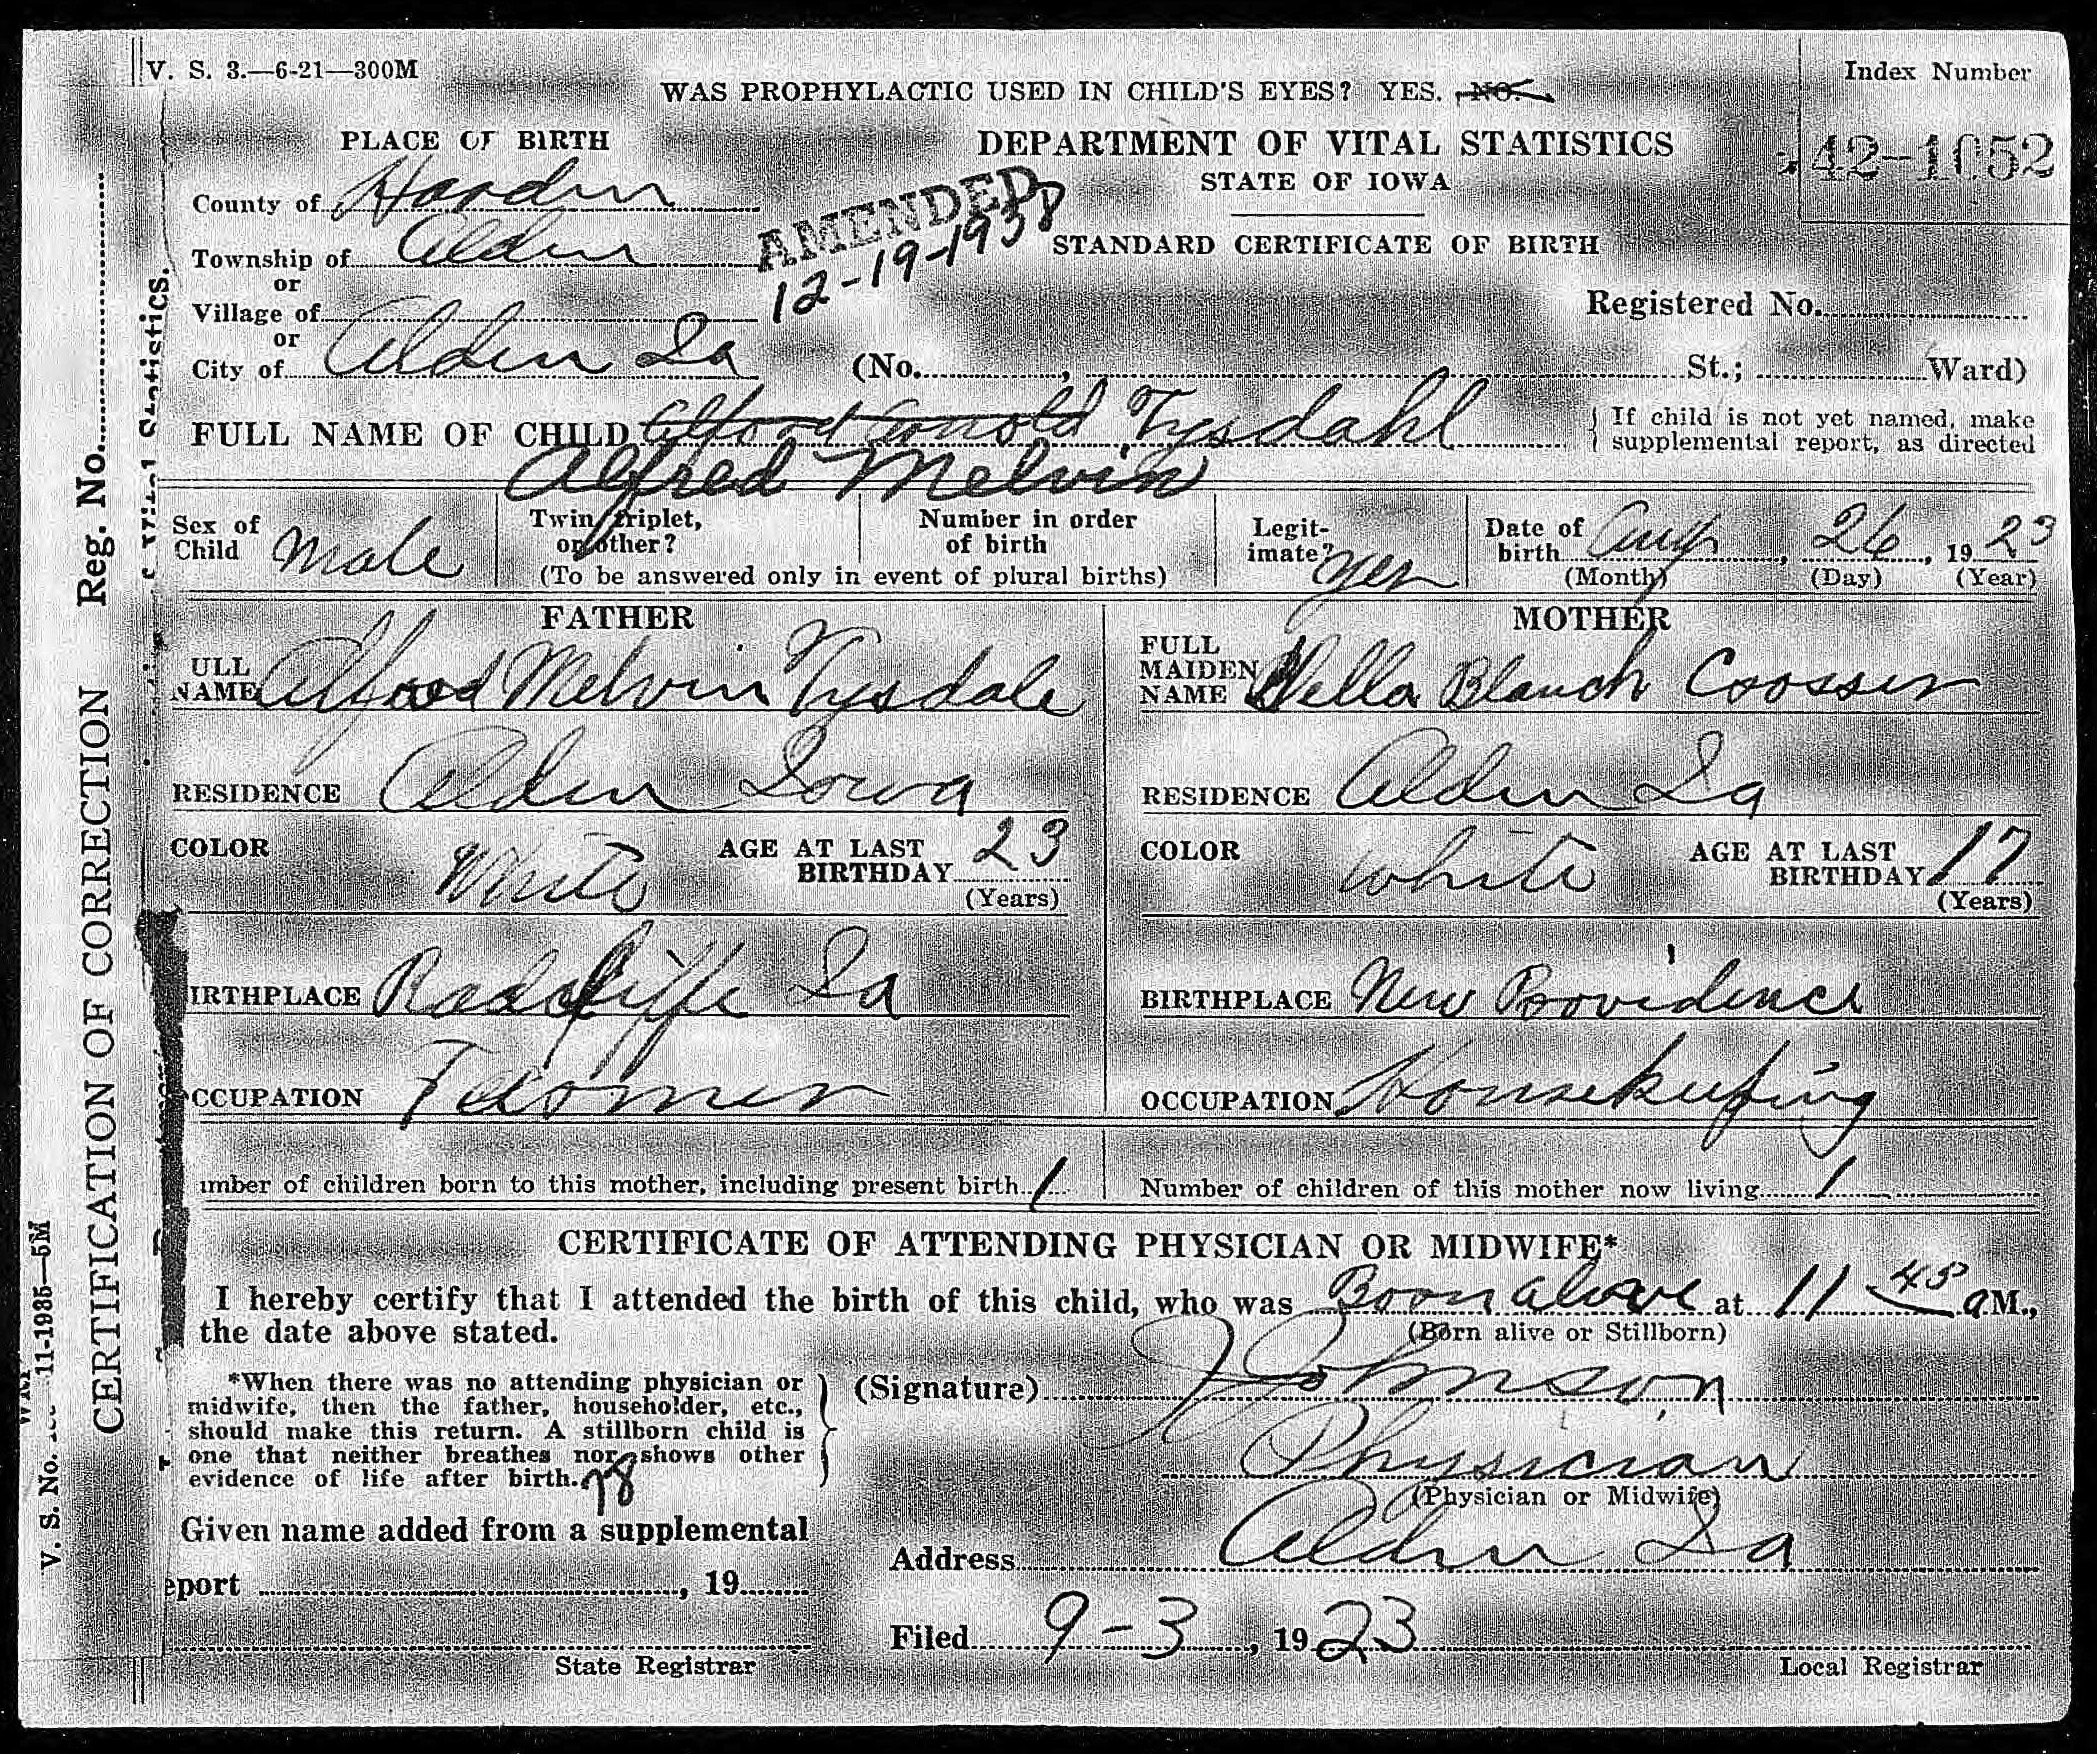 V. S. 3.—6-21—300M
WAS PROPHYLACTIC USED IN CHILD'S EYES? YES. NO.
Index Number
42-1052
PLACE OF BIRTH
DEPARTMENT OF VITAL STATISTICS
STATE OF IOWA
County of Hardin
AMENDED
12-19-1938
Township of Alden
STANDARD CERTIFICATE OF BIRTH
or
Village of
Registered No.
or
City of Alden Ia
(No. , St.; Ward)
FULL NAME OF CHILD Alford Arnold Tysdahl
Alfred Melvin
{ If child is not yet named, make
supplemental report, as directed
Sex of Child Male
Twin, triplet, or other?
Number in order of birth
(To be answered only in event of plural births)
Legitimate? Yes
Date of birth Aug, 26, 1923
(Month) (Day) (Year)
FATHER
ULL NAME Alfred Melvin Tysdale
RESIDENCE Alden Iowa
COLOR White
AGE AT LAST BIRTHDAY 23
(Years)
IRTHPLACE Radcliffe Ia
CCUPATION Farmer
MOTHER
FULL MAIDEN NAME Della Blanch Crosser
RESIDENCE Alden Ia
COLOR White
AGE AT LAST BIRTHDAY 17
(Years)
BIRTHPLACE New Providence
OCCUPATION Housekeeping
umber of children born to this mother, including present birth 1
Number of children of this mother now living 1
CERTIFICATE OF ATTENDING PHYSICIAN OR MIDWIFE*
I hereby certify that I attended the birth of this child, who was Born alive at 11 45 a M.,
(Born alive or Stillborn)
the date above stated.
*When there was no attending physician or
midwife, then the father, householder, etc.,
should make this return. A stillborn child is
one that neither breathes nor shows other
evidence of life after birth.
78
(Signature) Johnson
Physician
(Physician or Midwife)
Given name added from a supplemental
eport , 19
Address Alden Ia
Filed 9-3, 1923
State Registrar
Local Registrar
CERTIFICATION OF CORRECTION Reg. No.
V. S. No. 11-1935—5M
Statistics.